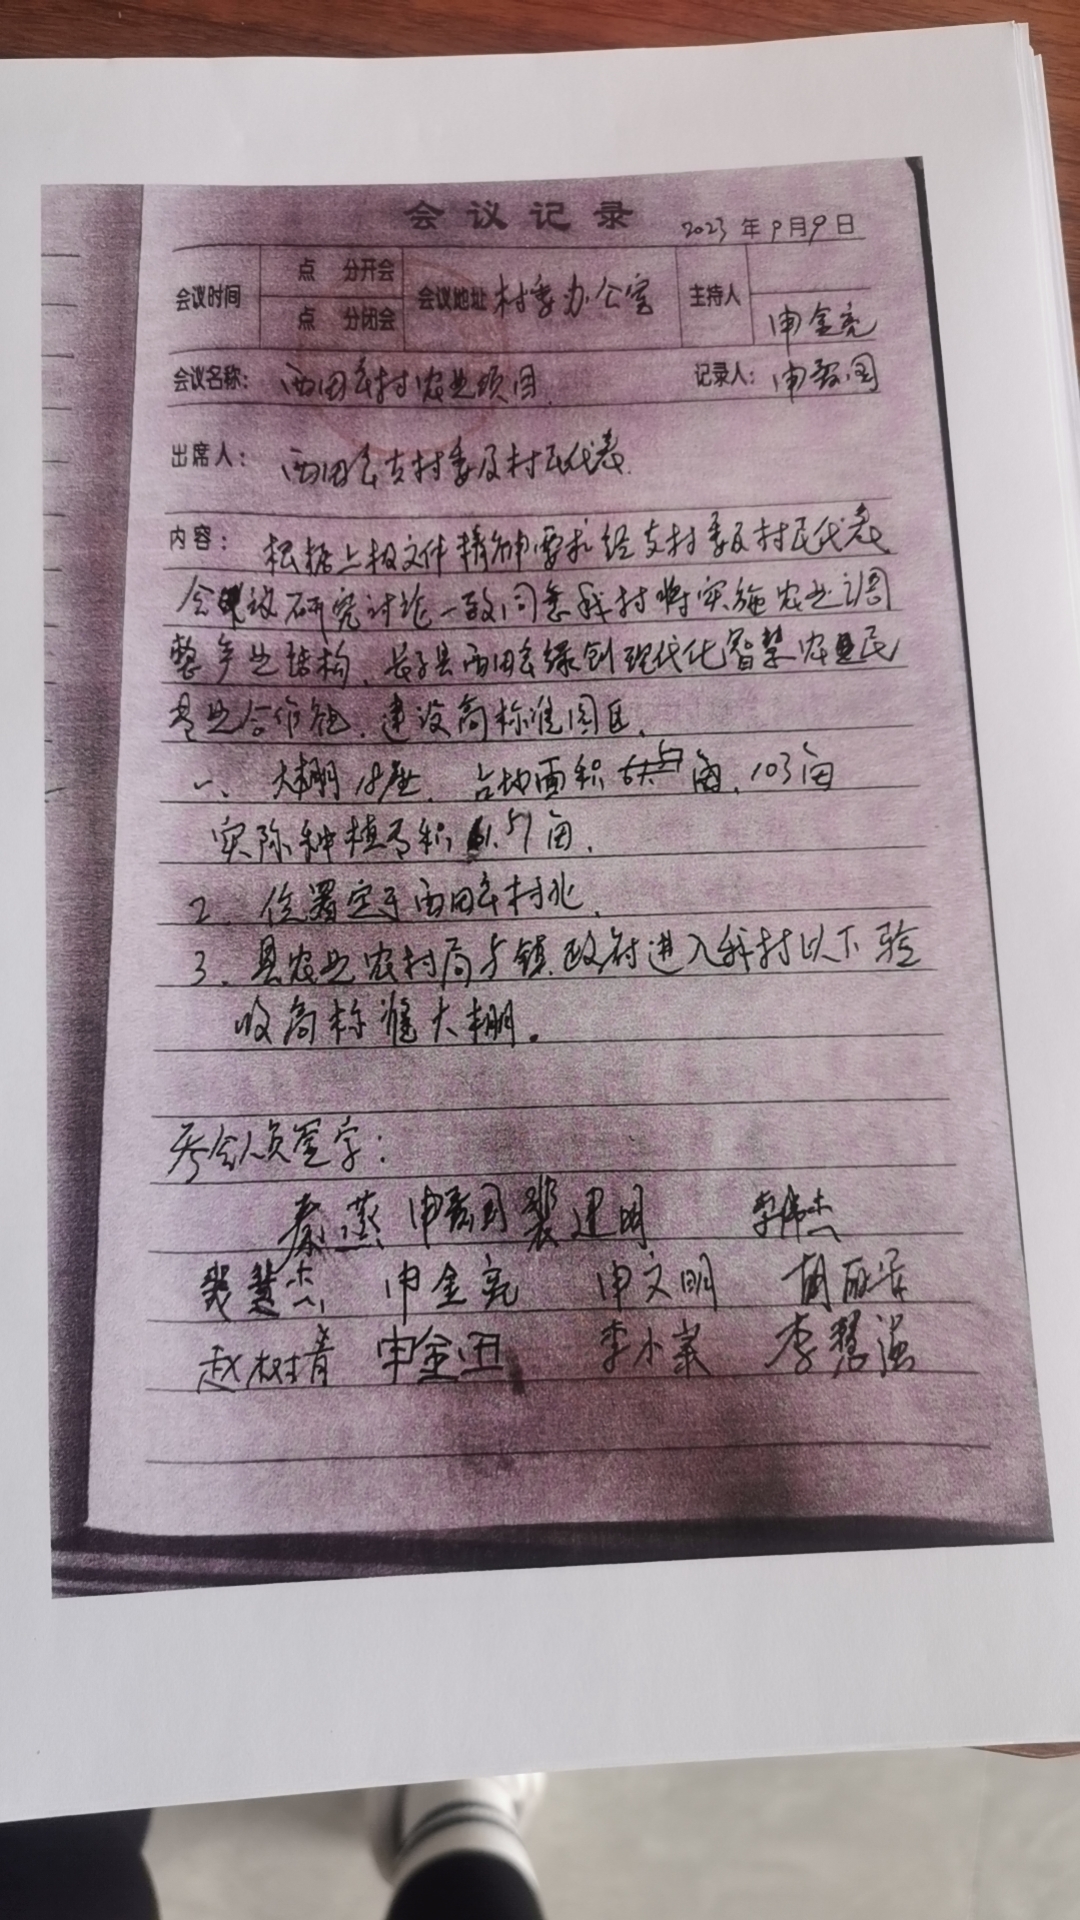 会议记录
2023年9月9日
会议时间 点 分开会 会议地址 村委办公室 主持人
点 分闭会 申金亮
会议名称: 西田良村农业项目. 记录人: 申
出席人: 西田良支村委及村民代表.
内容: 根据上级文件精神要求经支村委及村民代表
会议研究讨论一致同意我村将实施农业调
整产业结构、长子县西田良绿创现代化智慧农民
专业合作社、建设高标准园区.
一、大棚18座、占地面积 亩、103亩
实际种植面积 51亩.
2、位置定于西田良村北.
3、县农业农村局与镇政府进入我村以下验
收高标准大棚。
参会人员签字:
秦燕 申 国 裴建明 李伟杰
裴慧杰 申金亮 申文明
赵树青 申金田 李小